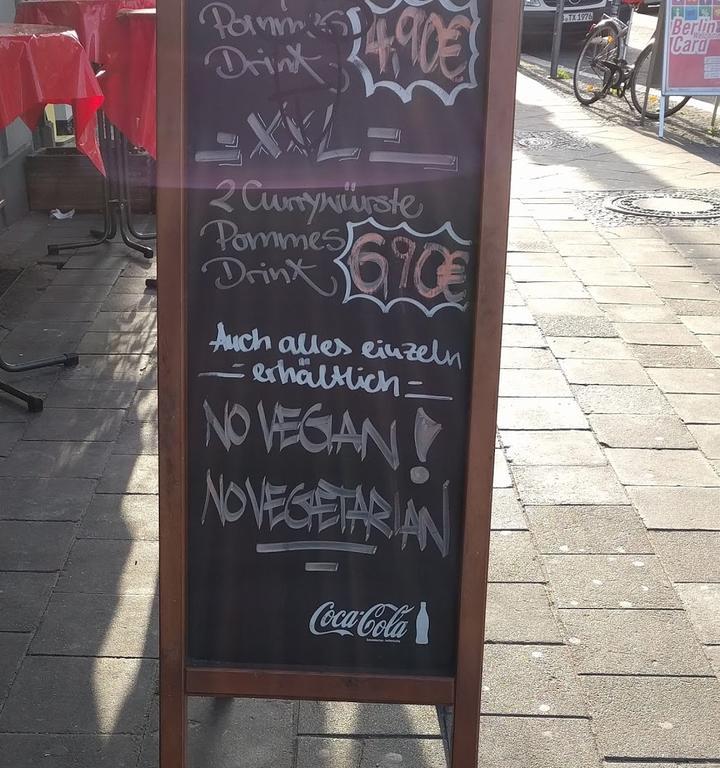 Pommes
Drink 4,90€
- XXL -
2 Currywürste
Pommes
Drink 6,90€
Auch alles einzeln
- erhältlich -
NO VEGAN!
NO VEGETARIAN
Coca-Cola
Berlin
Card
TX 1976